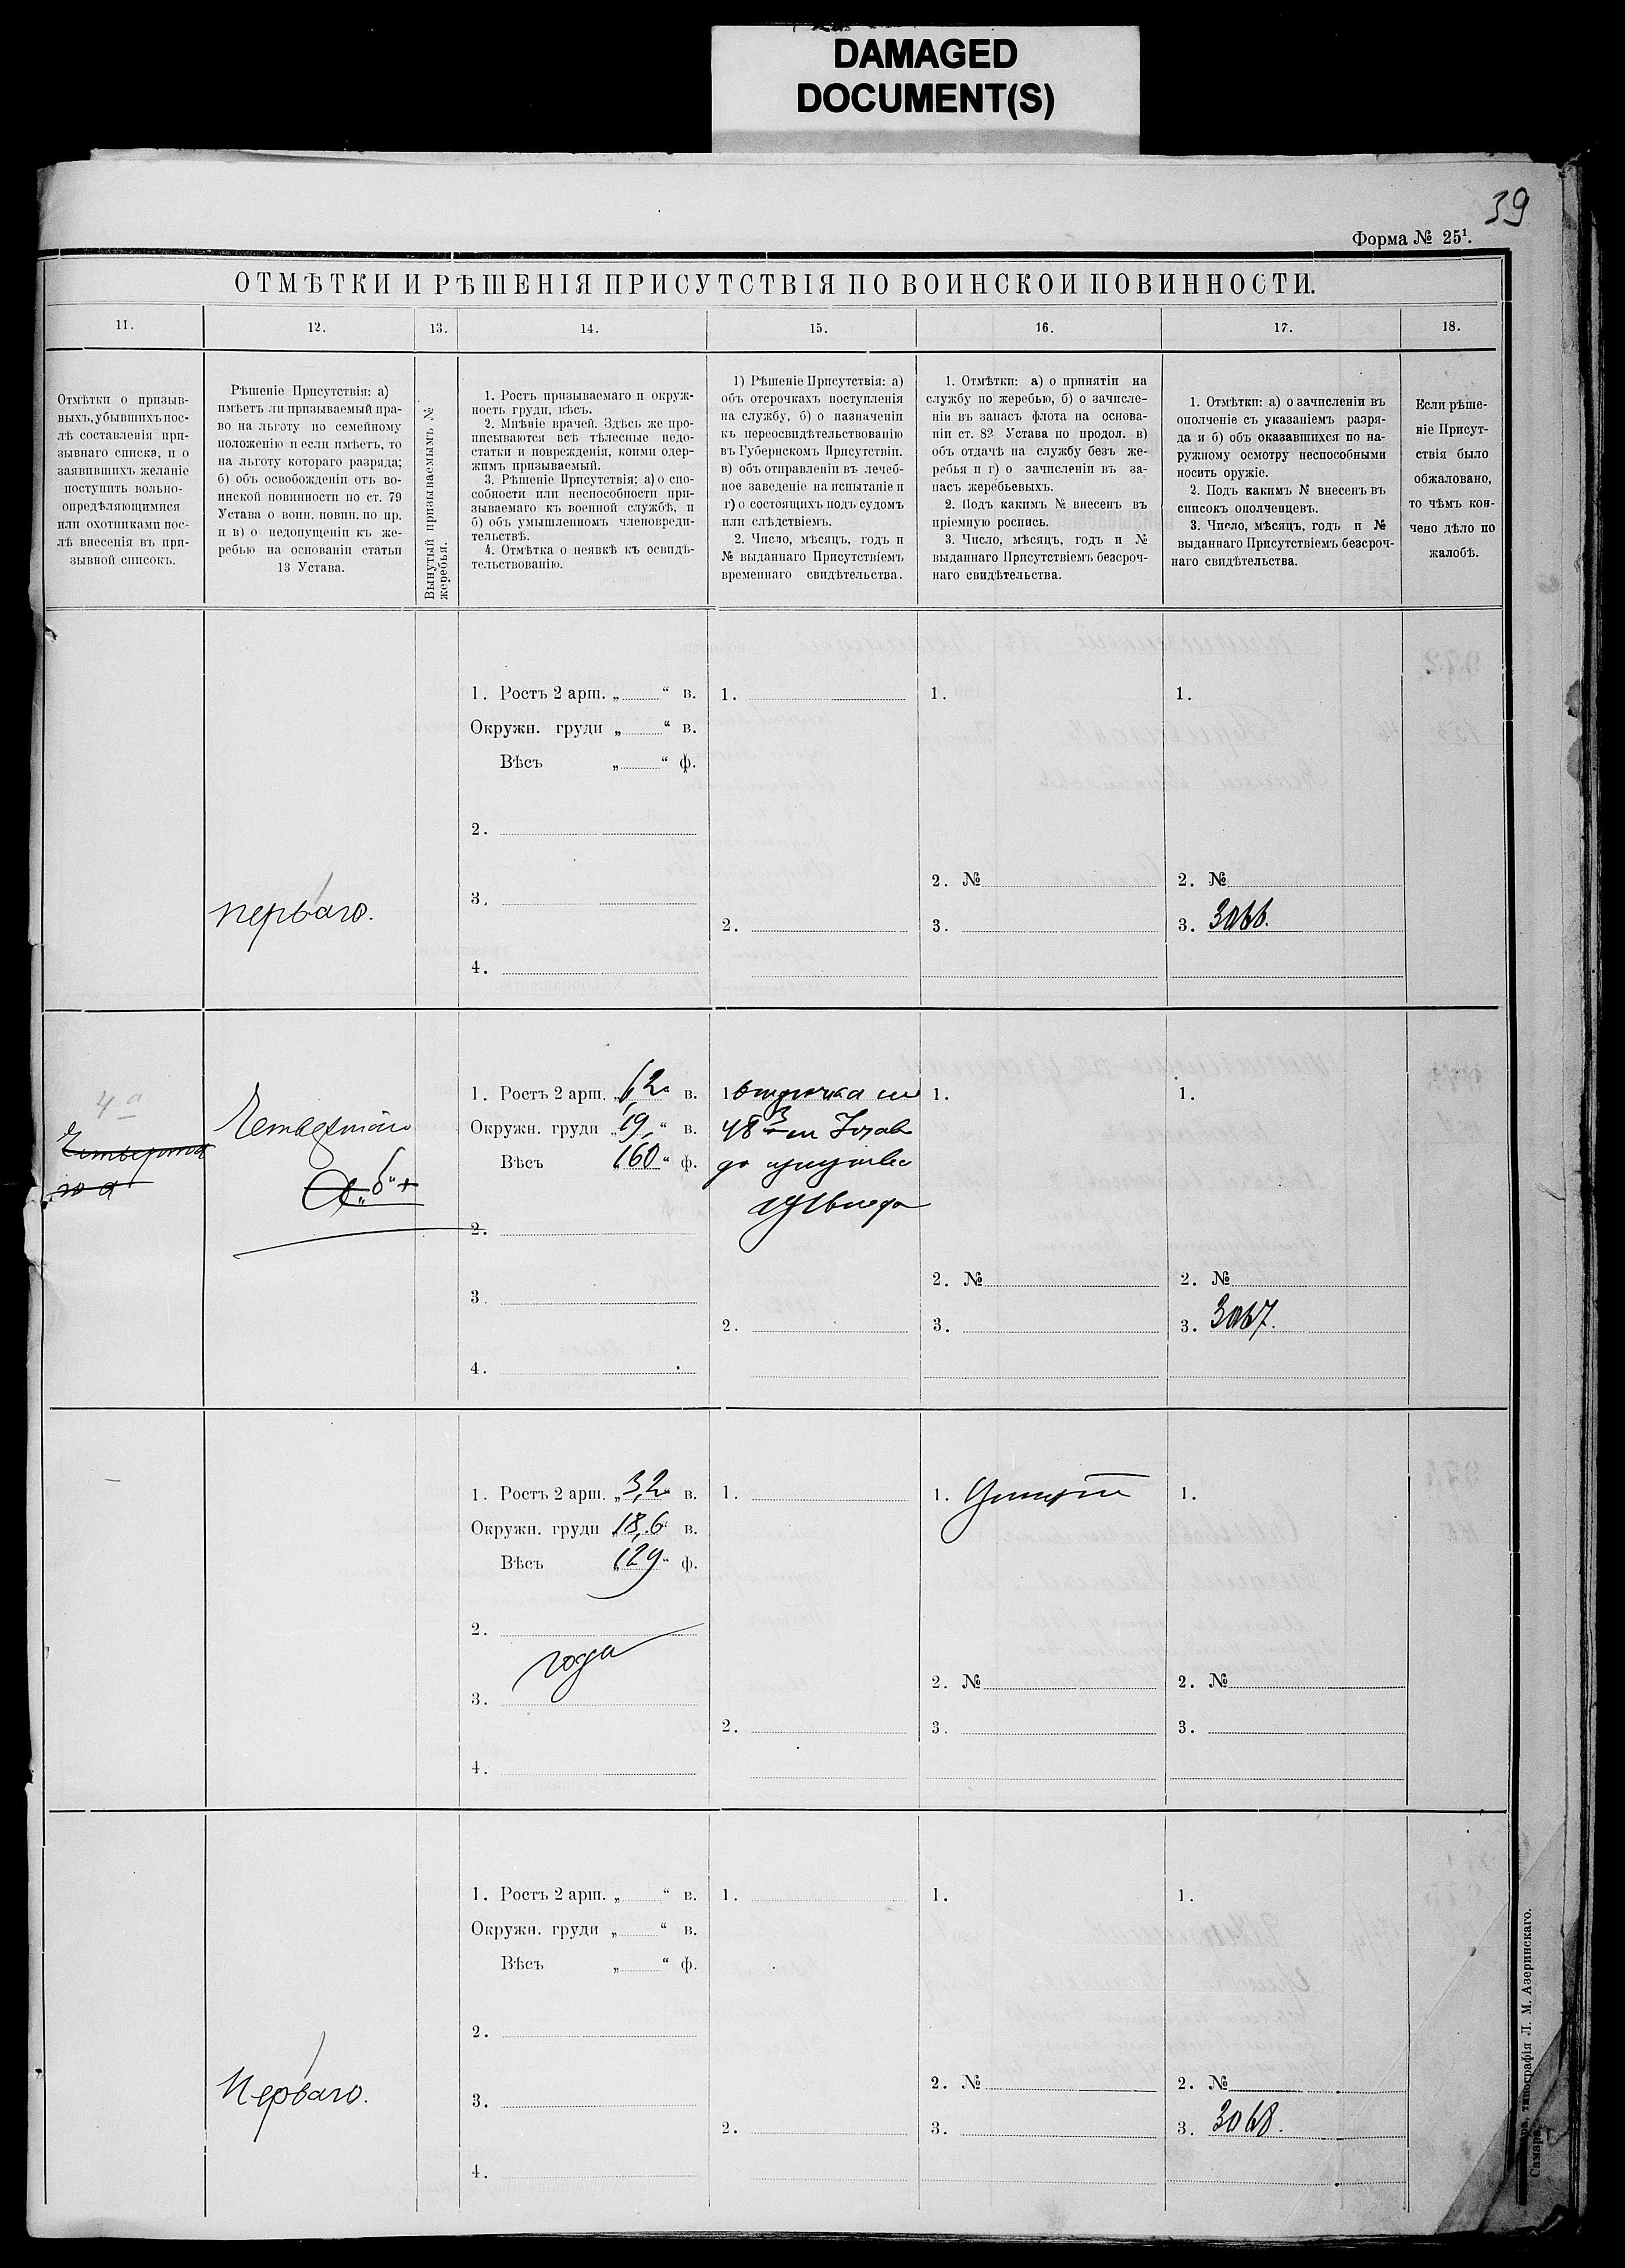 DAMAGED
DOCUMENT(S)
39
Форма № 25¹.
ОТМѢТКИ И РѢШЕНІЯ ПРИСУТСТВІЯ ПО ВОИНСКОЙ ПОВИННОСТИ.
11.
12.
13.
14.
15.
16.
17.
18.
Отмѣтки о призыв-
ныхъ, убывшихъ пос-
лѣ составленія при-
зывнаго списка, и о
заявившихъ желаніе
поступить вольно-
опредѣляющимися
или охотниками пос-
лѣ внесенія въ при-
зывной списокъ.
Рѣшеніе Присутствія: а)
имѣетъ ли призываемый пра-
во на льготу по семейному
положенію и если имѣетъ, то
на льготу котораго разряда;
б) объ освобожденіи отъ во-
инской повинности по ст. 79
Устава о воин. повин. по пр.
и в) о недопущеніи къ же-
ребью на основаніи статьи
13 Устава.
Вынутый призываемымъ №
жеребья.
1. Ростъ призываемаго и окруж-
ность груди, вѣсъ.
2. Мнѣніе врачей. Здѣсь же про-
писываются всѣ тѣлесные недо-
статки и поврежденія, коими одер-
жимъ призываемый.
3. Рѣшеніе Присутствія: а) о спо-
собности или неспособности при-
зываемаго къ военной службѣ, и
б) объ умышленномъ членовреди-
тельствѣ.
4. Отмѣтка о неявкѣ къ освидѣ-
тельствованію.
1) Рѣшеніе Присутствія: а)
объ отсрочкахъ поступленія
на службу, б) о назначеніи
къ переосвидѣтельствованію
въ Губернскомъ Присутствіи.
в) объ отправленіи въ лечеб-
ное заведеніе на испытаніе и
г) о состоящихъ подъ судомъ
или слѣдствіемъ.
2. Число, мѣсяцъ, годъ и
№ выданнаго Присутствіемъ
временнаго свидѣтельства.
1. Отмѣтки: а) о принятіи на
службу по жеребью, б) о зачисле-
ніи въ запасъ флота на основа-
ніи ст. 82 Устава по продол. в)
объ отдачѣ на службу безъ же-
ребья и г) о зачисленіи въ за-
пасъ жеребьевыхъ.
2. Подъ какимъ № внесенъ въ
пріемную роспись.
3. Число, мѣсяцъ, годъ и №
выданнаго Присутствіемъ безсроч-
наго свидѣтельства.
1. Отмѣтки: а) о зачисленіи въ
ополченіе съ указаніемъ разря-
да и б) объ оказавшихся по на-
ружному осмотру неспособными
носить оружіе.
2. Подъ какимъ № внесенъ въ
списокъ ополченцевъ.
3. Число, мѣсяцъ, годъ и №
выданнаго Присутствіемъ безсроч-
наго свидѣтельства.
Если рѣше-
ніе Присут-
ствія было
обжаловано,
то чѣмъ кон-
чено дѣло по
жалобѣ.
перваго.
1. Ростъ 2 арш. „ “ в.
Окружн. груди „ “ в.
Вѣсъ „ “ ф.
2.
3.
4.
1.
2.
1.
2. №
3.
1.
2. №
3. 3066.
4а
Четвертаго
„б“
1. Ростъ 2 арш. „6,2“ в.
Окружн. груди „19,“ в.
Вѣсъ „160“ ф.
2.
3.
4.
1.
48
2.
1.
2. №
3.
1.
2. №
3. 3067.
1. Ростъ 2 арш. „3,2“ в.
Окружн. груди „18,6“ в.
Вѣсъ „129“ ф.
2.
3.
годен
4.
1.
2.
1.
2. №
3.
1.
2. №
3.
Перваго.
1. Ростъ 2 арш. „ “ в.
Окружн. груди „ “ в.
Вѣсъ „ “ ф.
2.
3.
4.
1.
2.
1.
2. №
3.
1.
2. №
3. 3068.
типографія Л. М. Азеринскаго.
Самара,